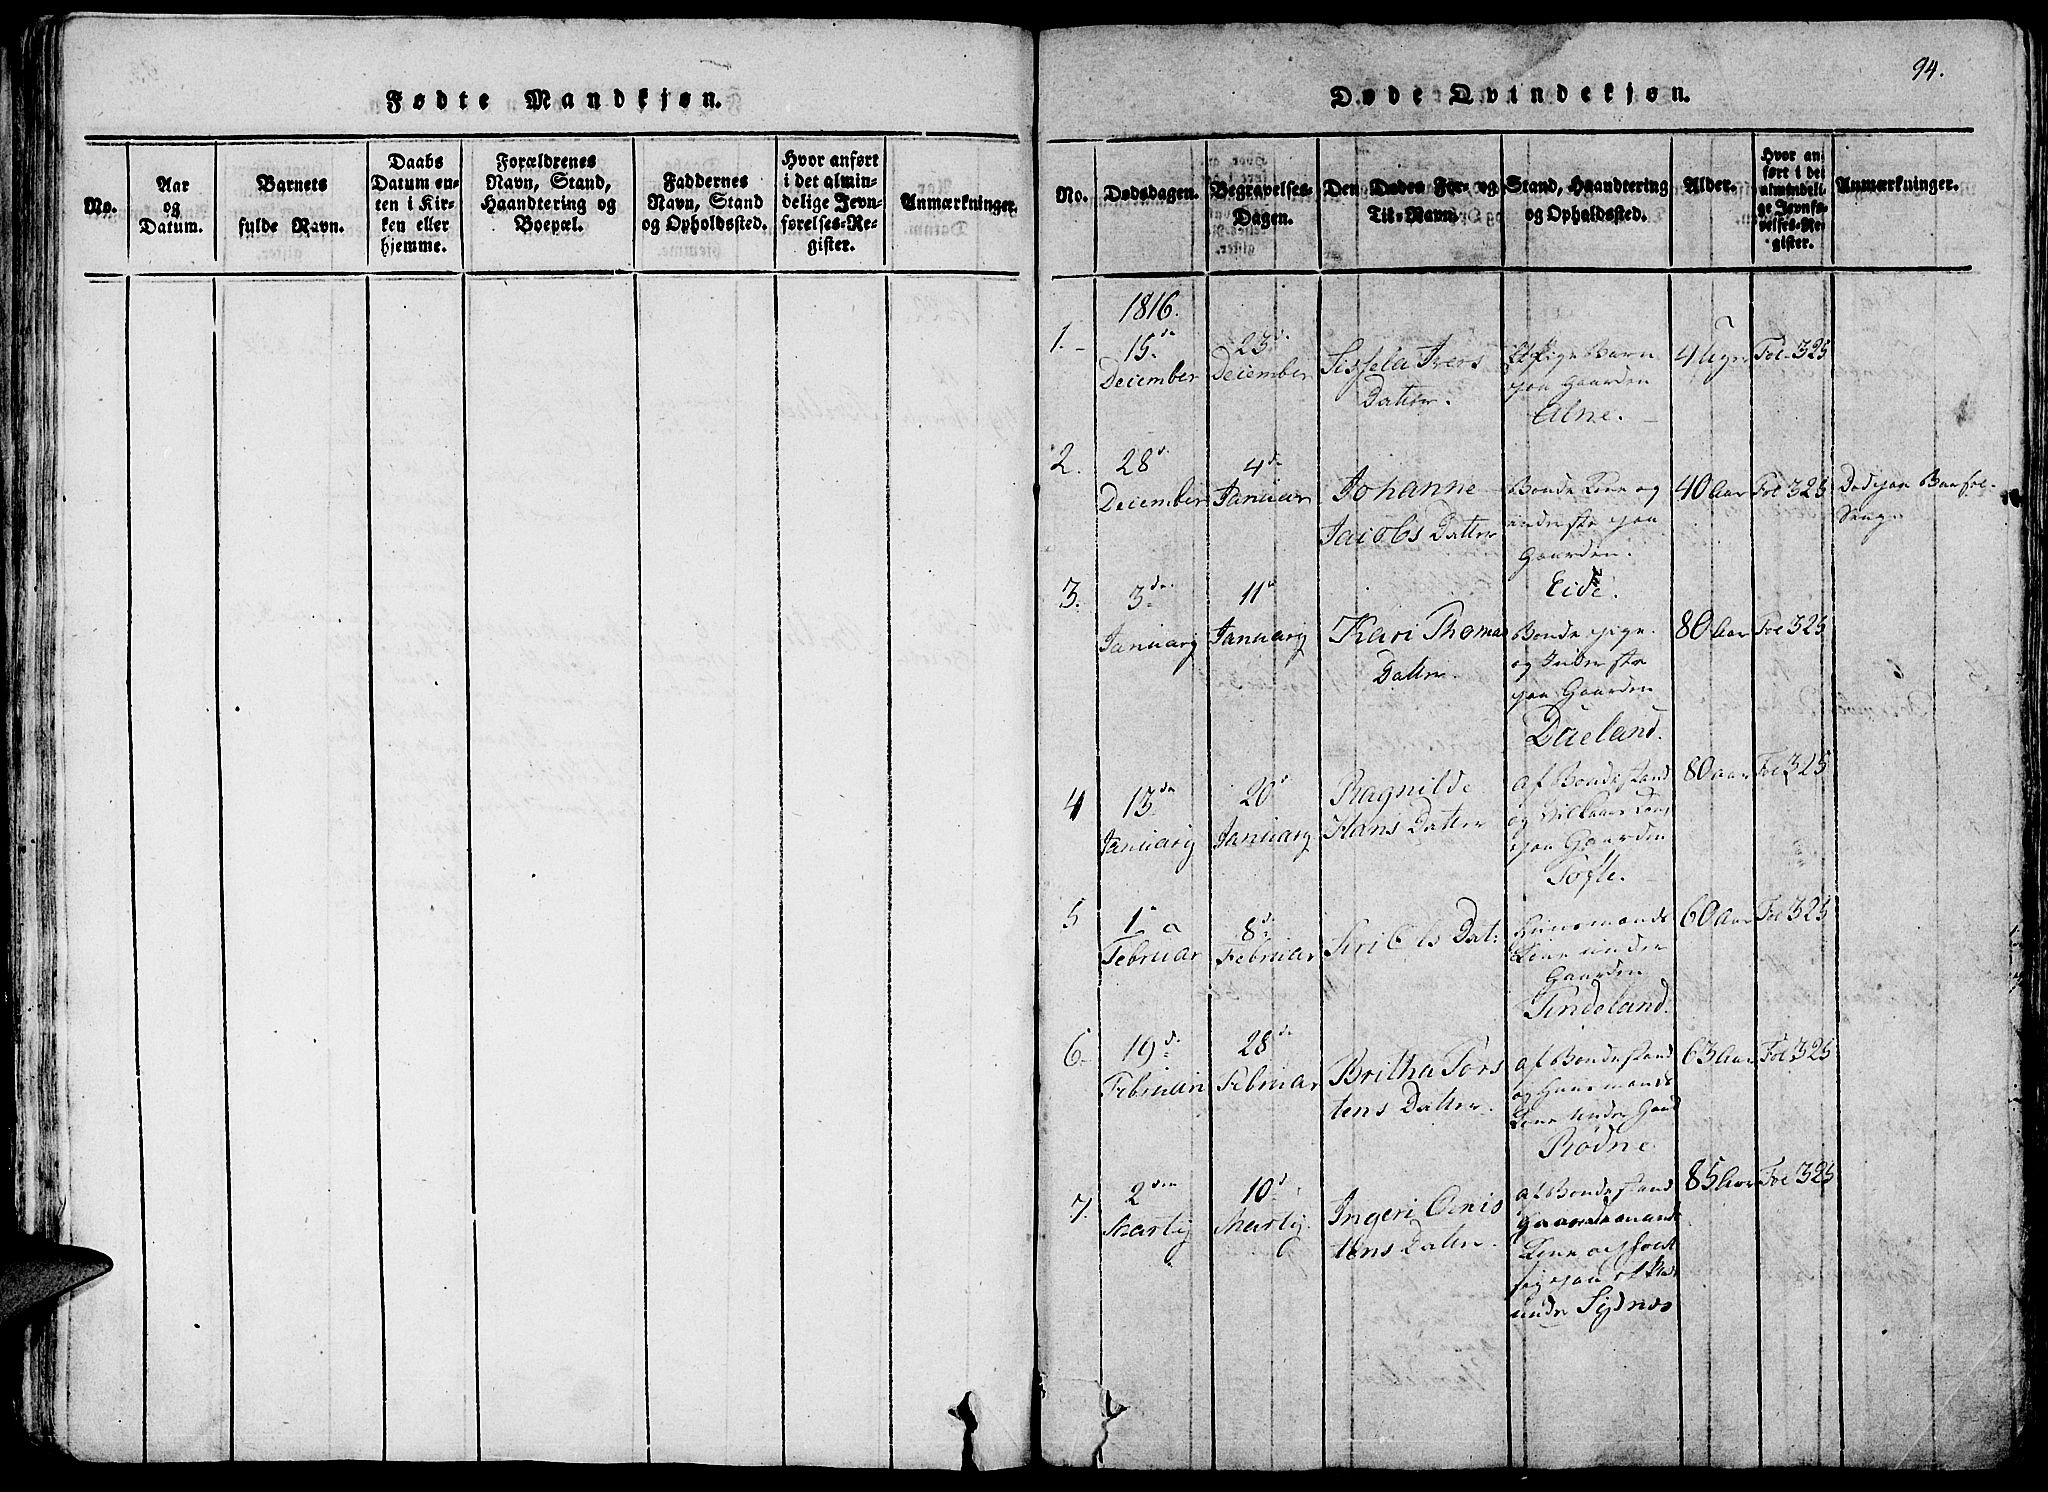 Fødte Mandkjøn.
No.
Aar
og
Datum.
Barnets
fulde Navn.
Daabs
Datum en-
ten i Kir-
ken eller
hjemme.
Forældrenes
Navn, Stand,
Haandtering og
Boepæl.
Faddernes
Navn, Stand
og Opholdssted.
Hvor anført
i det almin-
delige Jevn-
førelses-Re-
gister.
Anmærkninger.
94.
Døde Qvindekjøn.
No.
Dødsdagen.
Begravelses-
Dagen.
Den Dødes For- og
Til-Navn.
Stand, Haandtering
og Opholdssted.
Alder.
Hvor an-
ført i det
almindeli-
ge Jevnfø-
relses-Re-
gister.
Anmærkninger.
1816.
1.
15de
December
23de
December
Sissela Ivers
Datter.
Barn
paa Gaarden
Alne.
4 Uger
Fol 325
2.
28d
December
4de
Januar
Johanne
Jacobs Datter
Bonde Kone og
paa
Gaarden
Eide.
40 Aar
Fol 325
Død paa Barsel-
Seng
3.
3de
Januarij
11d
Januarij
Kari Thomas
Datter.
Bonde pige
og Inderste
paa Gaarden
Dueland.
80 Aar
Fol 325
4
13de
Januarij
20d
Januarij
Ragnilde
Hans Datter
af Bondestand
og
paa Gaarden
Tofte.
80 aar
Fol 325
5
1
Februar
8de
Februar
Siri Ols Dat:
Huusmands
Kone under
Gaarden
Tindeland.
60 Aar
Fol 325
6.
19de
Februari
28de
Februar
Britha Tors
tens Datter.
af Bondestand
og Huusmands
Kone under Gaard
Rødne
63 Aar
Fol 325
7.
2den
Martij
10d
Martij.
Ingeri
tens Datter.
af Bondestand
Gaardmands
Kone
paa
under Sydnes
85 Aar
Fol 325